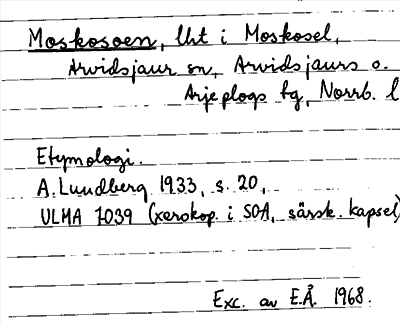 Moskosoen, lht i Moskosel,
Arvidsjaur sn, Arvidsjaurs o.
Arjeplogs tg, Norrb. l
Etymologi.
A. Lundberg 1933, s. 20,
ULMA 7039 (xerokop. i SOA, särsk. kapsel)
Exc. av E.Å. 1968.